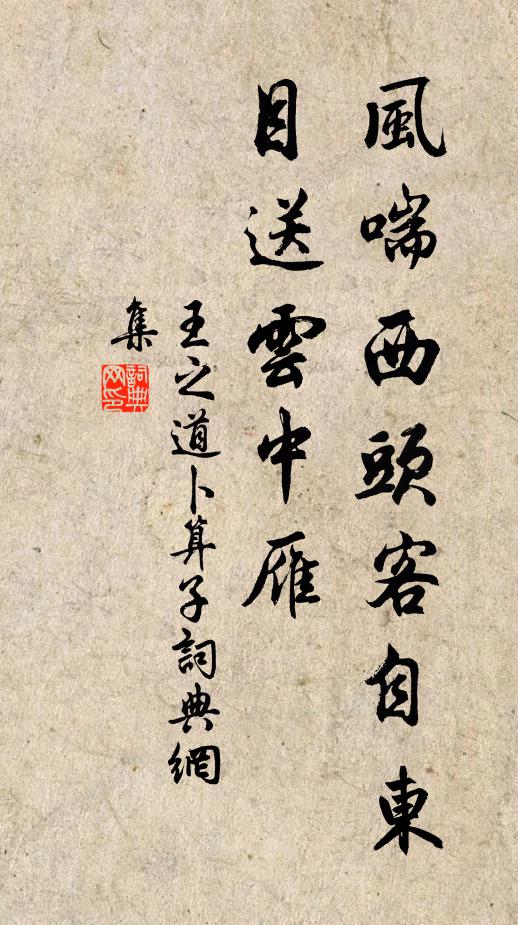 風喘西頭客自東
目送雲中雁
王之道卜算子詞典網
集
詞典
网印